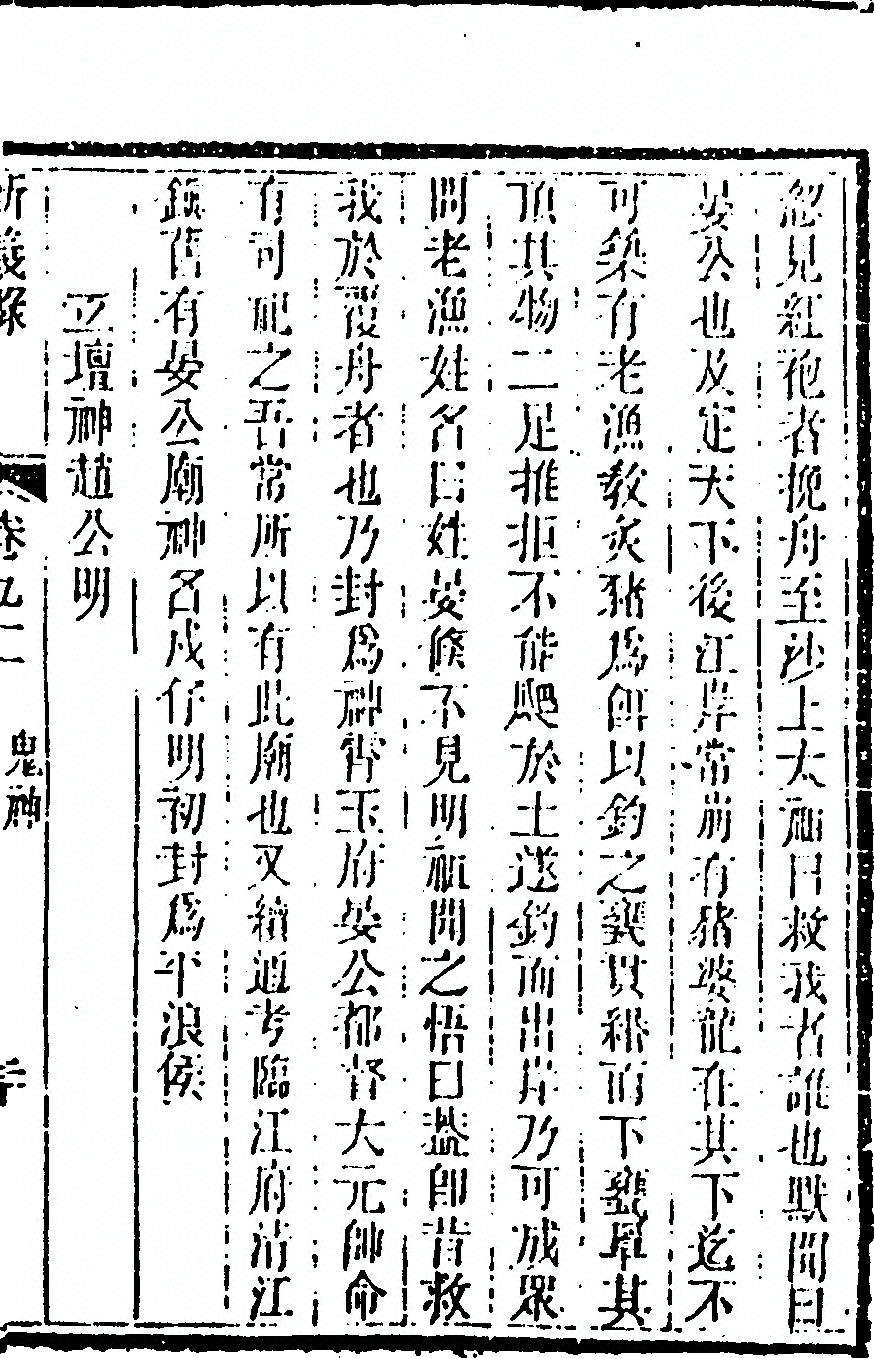 忽見紅袍者挽舟至沙上太祖曰救我者誰也默聞曰
晏公也及定天下後江岸常崩有猪婆龍在其下迄不
可築有老漁教炙猪爲餌以釣之甕貫緡而下甕罩其
頂其物二足推拒不能爬於土遂釣而出岸乃可成眾
問老漁姓名曰姓晏倏不見明祖聞之悟曰蓋即昔救
我於覆舟者也乃封爲神霄玉府晏公都督大元帥命
有司祀之吾常所以有此廟也又續通考臨江府清江
鎮舊有晏公廟神名戍仔明初封爲平浪侯
立壇神趙公明
卷九二 鬼神